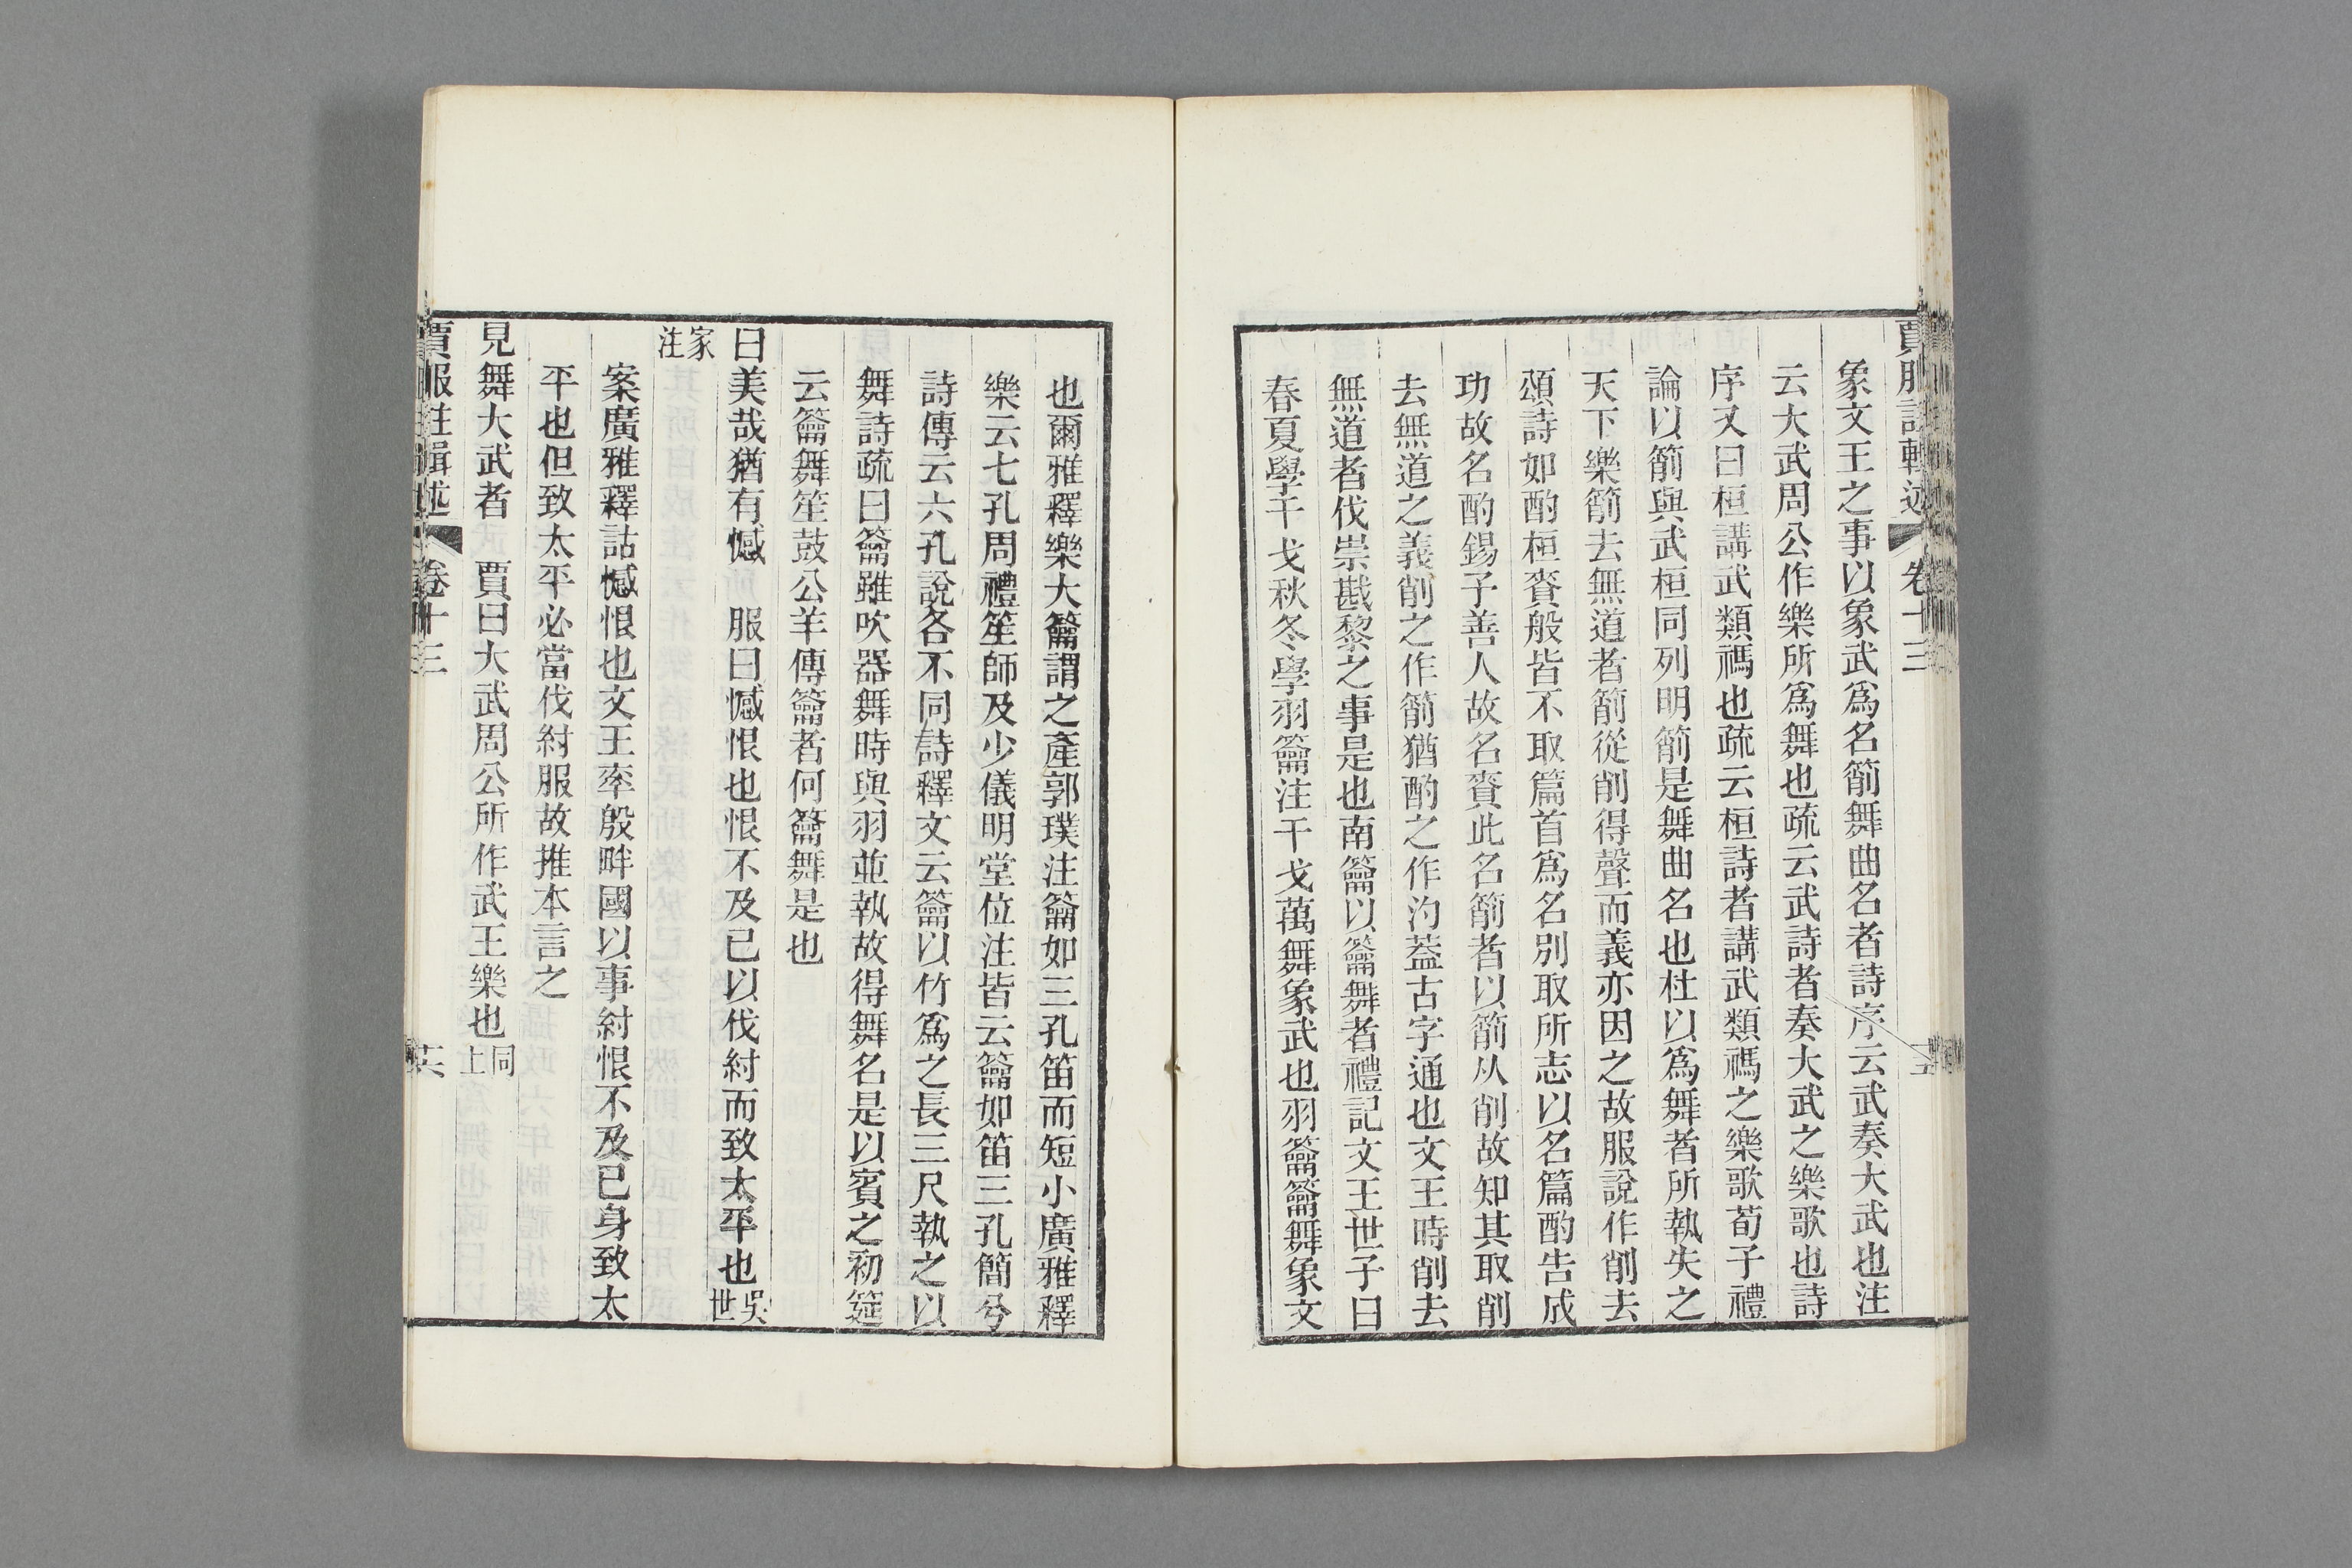 賈服註輯述 卷十三 五
象文王之事以象武爲名箾舞曲名者詩序云武奏大武也注
云大武周公作樂所爲舞也疏云武詩者奏大武之樂歌也詩
序又曰桓講武類禡也疏云桓詩者講武類禡之樂歌荀子禮
論以箾與武桓同列明箾是舞曲名也杜以爲舞者所執失之
天下樂箾去無道者箾從削得聲而義亦因之故服說作削去
頌詩如酌桓賚般皆不取篇首爲名別取所志以名篇酌告成
功故名酌錫予善人故名賚此名箾者以箾从削故知其取削
去無道之義削之作箾猶酌之作汋葢古字通也文王時削去
無道者伐崇戡黎之事是也南籥以籥舞者禮記文王世子曰
春夏學干戈秋冬學羽籥注干戈萬舞象武也羽籥籥舞象文
也爾雅釋樂大籥謂之產郭璞注籥如三孔笛而短小廣雅釋
樂云七孔周禮笙師及少儀明堂位注皆云籥如笛三孔簡兮
詩傳云六孔說各不同詩釋文云籥以竹爲之長三尺執之以
舞詩疏曰籥雖吹器舞時與羽並執故得舞名是以賓之初筵
云籥舞笙鼓公羊傳籥者何籥舞是也
曰美哉猶有憾 服曰憾恨也恨不及已以伐紂而致太平也吳世
家注
案廣雅釋詁憾恨也文王率殷畔國以事紂恨不及已身致太
平也但致太平必當伐紂服故推本言之
見舞大武者 賈曰大武周公所作武王樂也同上
賈服註輯述 卷十三 十六